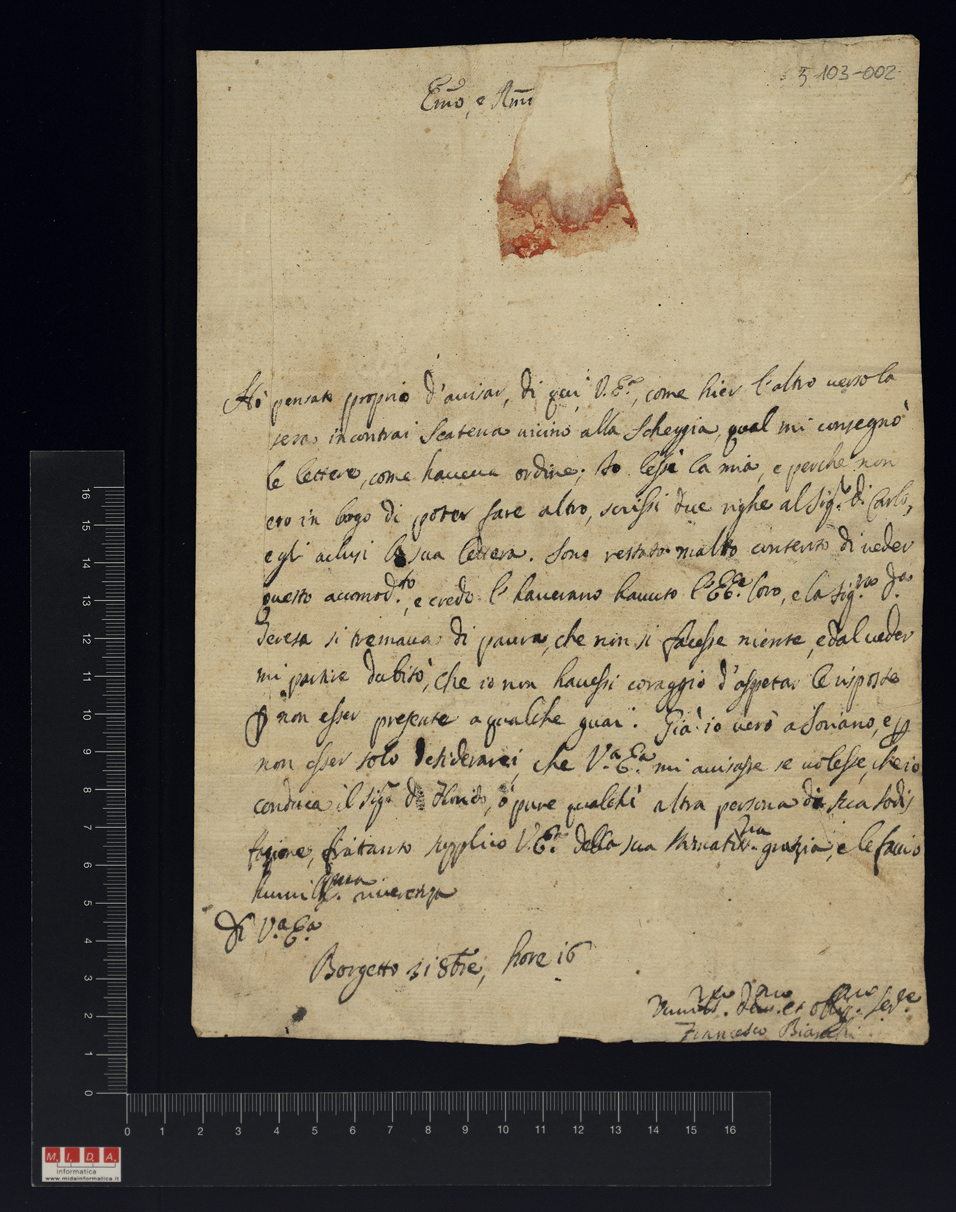 5 103-002
Em̃o, e Rm̃
Hò pensato proprio d'avisar, di qui V.Eᵃ., come hier l'altro verso la
sera incontrai Scatena vicino alla Scheggia, qual mi consegnò
le lettere, come haveva ordine; Io lessi la mia, e perche non
ero in logo di poter fare altro, scrissi due righe al Sigʳ. d. Carlo,
e gli aclusi la sua lettera. Sono restato molto contento di veder
questo acomodᵗᵒ., e credo l'haverano havuto l'EEᵉ. loro, e la Sigʳᵃ. Dᵃ.
Teresa si tremava di paura, che non si facesse niente, e dal veder
mi partire dubitò, che io non havessi coraggio d'aspetar le risposte
ꝑ non esser presente a qualche guai. Già io verò a Soriano, e ꝑ
non esser solo desiderarei, che Vᵃ.Eᵃ. mi avisasse se volesse, che io
conduca il Sigʳ. D. Florido, ò pure qualchi altra persona di sua sodis
fazione, frattanto supplico V.Eᵃ. della sua grazia, e le facio
humilᵐᵃ. riverenza
Di Vᵃ.Eᵃ.
Borgetto 31 8bre, hore 16
Humilᵐᵒ. Devᵐᵒ. et oblᵐᵒ. Serᵉ.
Francesco Bianchi
16
15
14
13
12
11
10
9
8
7
6
5
4
3
2
1
0
0 1 2 3 4 5 6 7 8 9 10 11 12 13 14 15 16
M.I.D.A.
informatica
www.midainformatica.it